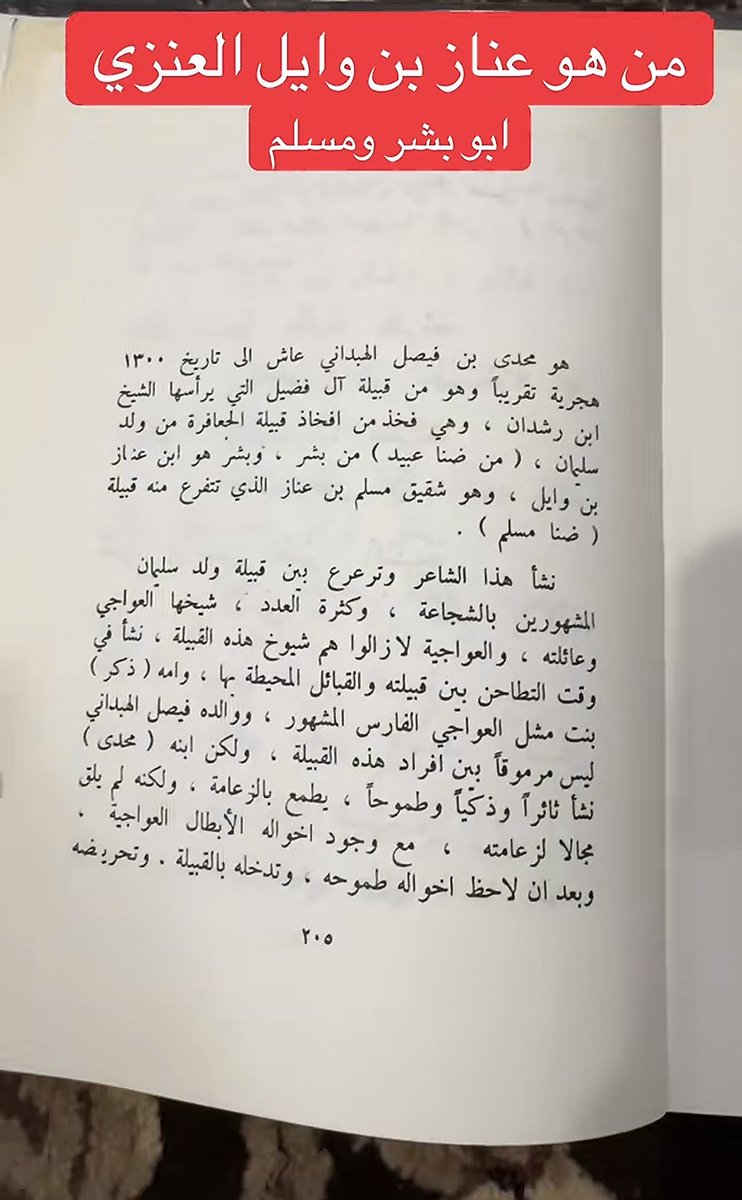 من هو عناز بن وايل العنزي
ابو بشر ومسلم
هو محدى بن فيصل الهبداني عاش الى تاريخ ١٣٠٠
هجرية تقريباً وهو من قبيلة آل فضيل التي يرأسها الشيخ
ابن رشدان ، وهي فخذ من افخاذ قبيلة الجعافرة من ولد
سليمان ، ( من ضنا عبيد ) من بشر ، وبشر هو ابن عناز
بن وايل ، وهو شقيق مسلم بن عناز الذي تتفرع منه قبيلة
( ضنا مسلم ) .
نشأ هذا الشاعر وترعرع بين قبيلة ولد سليمان
المشهورين بالشجاعة ، وكثرة العدد ، شيخها العواجي
وعائلته ، والعواجية لازالوا هم شيوخ هذه القبيلة ، نشأ في
وقت التطاحن بين قبيلته والقبائل المحيطة بها ، وامه ( ذكر )
بنت مشل العواجي الفارس المشهور ، ووالده فيصل الهبداني
ليس مرموقاً بين افراد هذه القبيلة ، ولكن ابنه ( محدى )
نشأ ثائراً وذكيّاً وطموحاً ، يطمع بالزعامة ، ولكنه لم يلق
مجالا لزعامته ، مع وجود اخواله الأبطال العواجية .
وبعد ان لاحظ اخواله طموحه ، وتدخله بالقبيلة . وتحريضه
٢٠٥